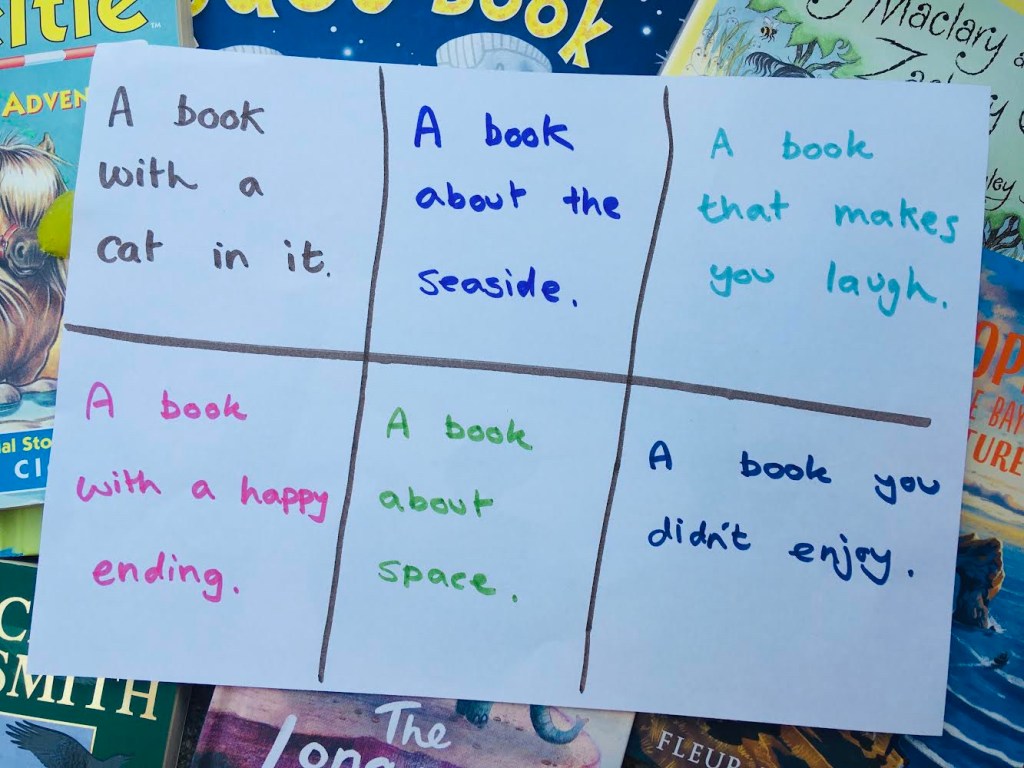 book
Maclary
ADVEN
A book
with a
cat in it.
A book
about the
seaside.
A book
that makes
you laugh.
A book
with a happy
ending.
A book
about
space.
A book you
didn't enjoy.
SMITH
The
FLEUR